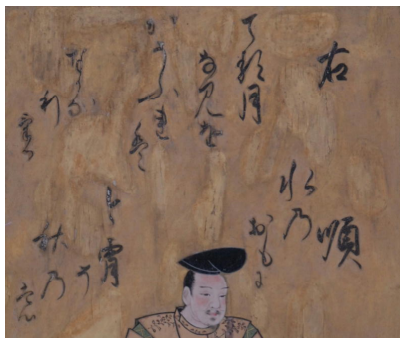 右 順
水乃
おもに
てる月
な見を
かそふれは
宵そ
秋乃